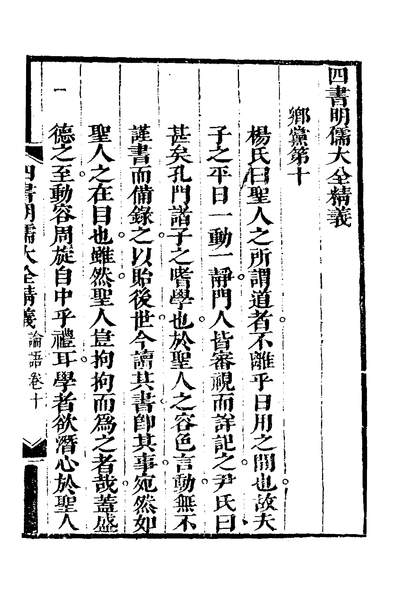 四書明儒大全精義
鄉黨第十
楊氏曰聖人之所謂道者不離乎日用之間也故夫
子之平日一動一靜門人皆審視而詳記之尹氏曰
甚矣孔門諸子之嗜學也於聖人之容色言動無不
謹書而備錄之以貽後世今讀其書卽其事宛然如
聖人之在目也雖然聖人豈拘拘而爲之者哉蓋盛
德之至動容周旋自中乎禮耳學者欲潛心於聖人
一
四書明儒大全精義 論語卷十